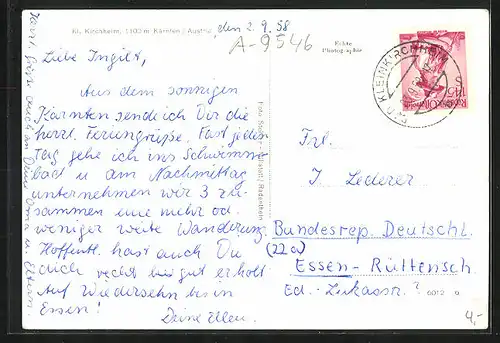 Kl. Kirchheim, 1100 m Kärnten / Austria
den 2. 9. 58
A-9546
Echte
Photographie
Liebe Ingilt,
Aus dem sonnigen
Kärnten sende ich Dir die
herzl. Feriengrüße. Fast jeden
Tag gehe ich ins Schwimm-
bad u am Nachmittag
unternehmen wir 3 zu-
sammen eine mehr od.
weniger weite Wanderung
Hoffentl. hast auch Du
dich recht gut erholt
Auf Wiedersehn bis in
Essen!
Deine Ellen.
auch an Deine Oma u. Eltern.
BAD KLEINKIRCHHEIM
Frl.
I Lederer
Bundesrep. Deutschl.
(22a)
Essen-Rüttensch
Ed.-Lukasstr.
6012
4,-